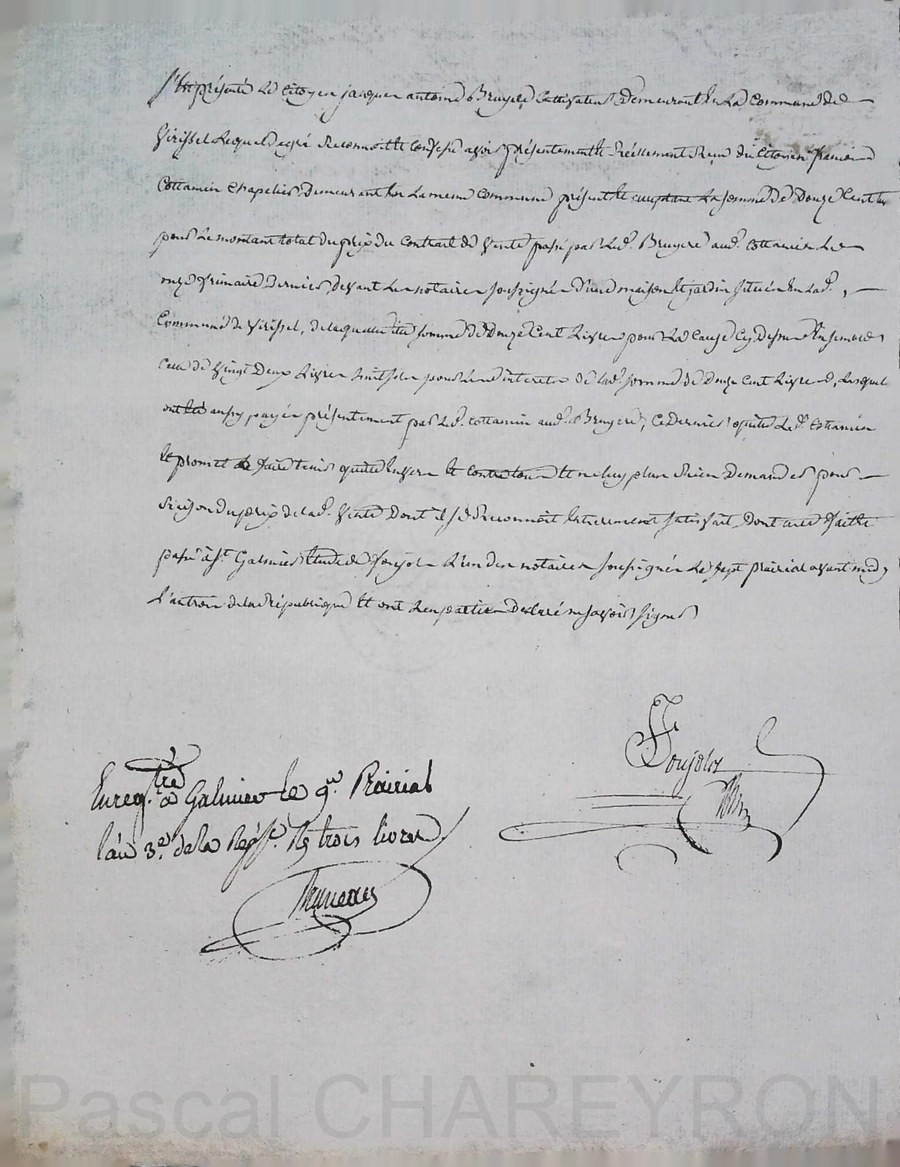 S'est présenté le Citoyen jacques antoine Bruyere Cultivateur Demeurant En La Commune de
Virissel Lequel de gré Reconnoit Et Confesse avoir présentement Et Réellement Reçu du Citoyen françois
Cottancin Chapelier Demeurant En La meme Commune présent Et La Somme de Douze Cent
pour Le montant total du prix du Contrat de Vente passé par Led. Bruyere aud. Cottancin Le
onze frimaire Dernier, devant Les notaires soussignés D'une maison Et jardin situés En lad.
Commune de Virissel, de laquelle somme de Douze Cent Livres pour La Cause Cy Dessus Ensemble
Celle de Vingt Deux Livres huit sols pour interets de lad. somme de Douze Cent Livres, Lesquels
ont été aussy payés présentement par Led. Cottancin aud. Bruyere, Ce Dernier quitte Led. Cottancin
Et promet de faire tenir quitte Envers Et Contre tous Et ne luy plus Rien Demander pour
Raison du prix de lad. Vente Dont il se Reconnoit Entierement satisfait, dont acte fait Et
passé à St. Galmier Etude de foujols L'un des notaires soussignés Le sept prairial avant midy
L'an trois de la République Et ont Les parties Déclaré ne savoir signer
foujols
Enreg.tré à Galmier le 9.e Prairial
l'an 3.e de la Rép.e R trois livres